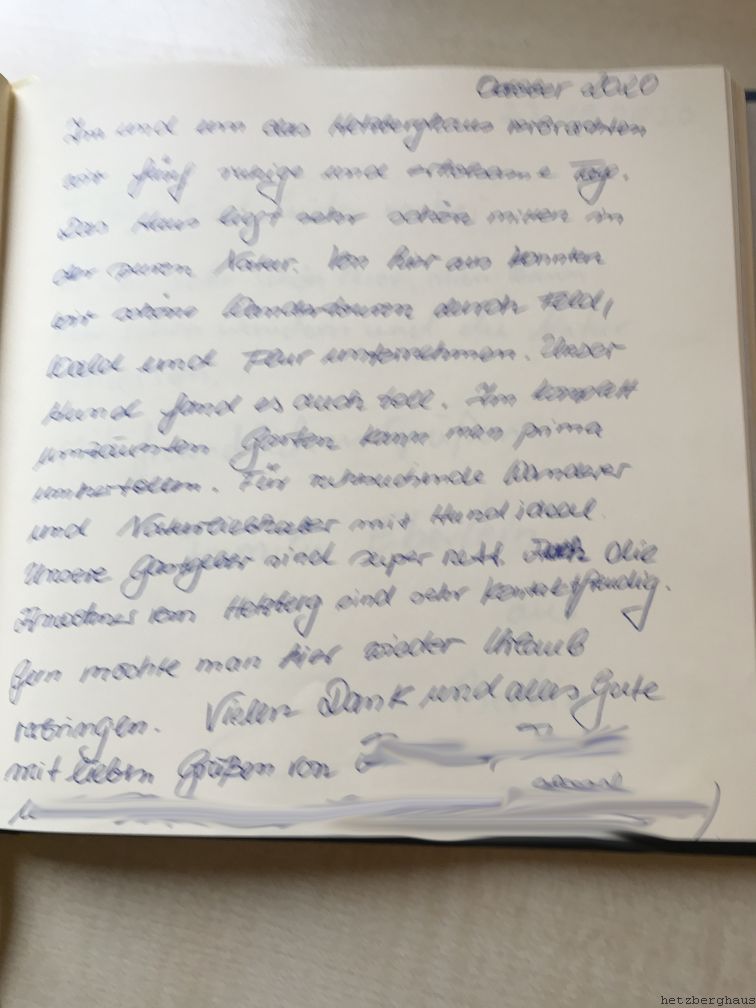 October 2020
Im und um das Hetzberghaus verbrachten
wir fünf ruhige und erholsame Tage.
Das Haus liegt sehr schön mitten in
der puren Natur. Von hier aus konnten
wir schöne Wandertouren durch Feld,
Wald und Flur unternehmen. Unser
Hund fand es auch toll. Im komplett
umzäunten Garten kann man prima
umhertollen. Für ruhesuchende Wanderer
und Naturliebhaber mit Hund ideal.
Unsere Gastgeber sind super nett. Auch die
Einwohner vom Hetzberg sind sehr kontaktfreudig.
Gern möchte man hier wieder Urlaub
verbringen. Vielen Dank und alles Gute
mit lieben Grüßen von
hetzberghaus